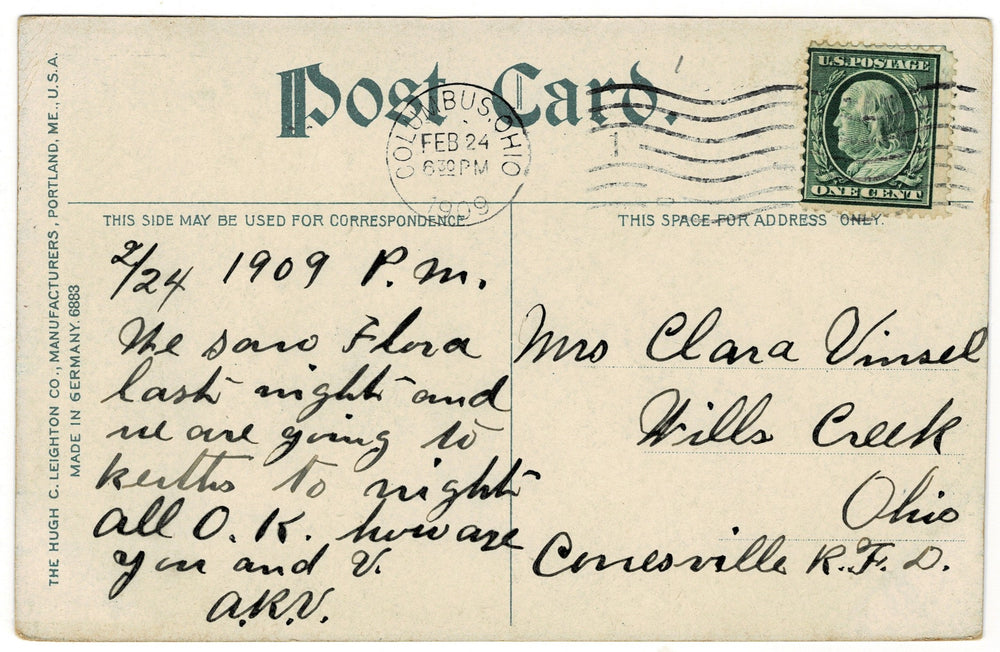 Post Card.
COLUMBUS, OHIO
FEB 24
6 30 PM
1909
U.S. POSTAGE
ONE CENT
THIS SIDE MAY BE USED FOR CORRESPONDENCE
THIS SPACE FOR ADDRESS ONLY.
2/24 1909 P.M.
We saw Flora
last night and
we are going to
keiths to night
all O.K. how are
you and V.
A.K.V.
Mrs Clara Vinsel
Wills Creek
Ohio
Conesville R.F.D.
THE HUGH C. LEIGHTON CO., MANUFACTURERS, PORTLAND, ME., U.S.A.
MADE IN GERMANY. 6883